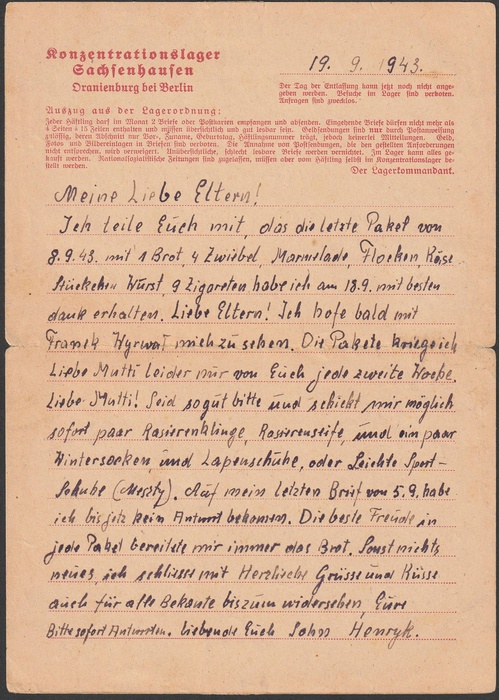 Konzentrationslager
Sachsenhausen
Oranienburg bei Berlin
19. 9. 1943.
Der Tag der Entlassung kann jetzt noch nicht ange-
geben werden. Besuche im Lager sind verboten.
Anfragen sind zwecklos.
Auszug aus der Lagerordnung:
Jeder Häftling darf im Monat 2 Briefe oder Postkarten empfangen und absenden. Eingehende Briefe dürfen nicht mehr als
4 Seiten à 15 Zeilen enthalten und müssen übersichtlich und gut lesbar sein. Geldsendungen sind nur durch Postanweisung
zulässig, deren Abschnitt nur Vor-, Zuname, Geburtstag, Häftlingsnummer trägt, jedoch keinerlei Mitteilungen. Geld,
Fotos und Bildereinlagen in Briefen sind verboten. Die Annahme von Postsendungen, die den gestellten Anforderungen
nicht entsprechen, wird verweigert. Unübersichtliche, schlecht lesbare Briefe werden vernichtet. Im Lager kann alles ge-
kauft werden. Nationalsozialistische Zeitungen sind zugelassen, müssen aber vom Häftling selbst im Konzentrationslager be-
stellt werden.
Der Lagerkommandant.
Meine Liebe Eltern!
Ich teile Euch mit, das die letzte Paket von
8.9.43. mit 1 Brot, 4 Zwiebel, Marmelade, Flocken, Käse
Stückchen Wurst, 9 Zigareten habe ich am 18.9. mit besten
dank erhalten. Liebe Eltern! Ich hofe bald mit
Franek Wyrwat mich zu sehen. Die Pakete kriege ich
Liebe Mutti leider nur von Euch jede zweite Woche.
Liebe Mutti! Seid so gut bitte und schickt mir möglich
sofort paar Rasierenklinge, Rasierenseife, und ein paar
Wintersocken und Lapenschuhe, oder Leichte Sport-
Schube (Meszty). Auf mein letzten Brief von 5.9. habe
ich bis jetz kein Antwort bekomen. Die beste Freude in
jede Paket bereitete mir immer das Brot. Sonst nichts
neues, ich schliesse mit Herzliche Grüsse und Küsse
auch für alle Bekante bis zum widersehen Eure
Bitte sofort Antworten. Liebende Euch Sohn Henryk.